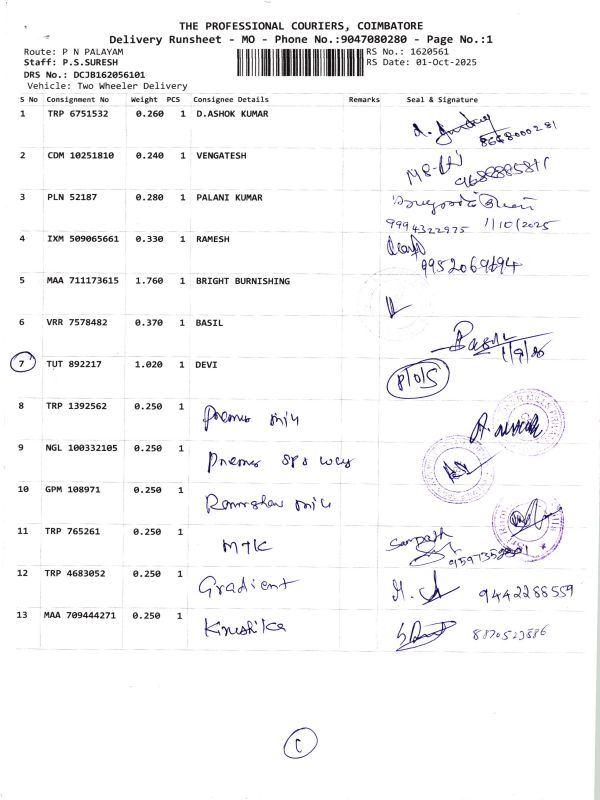 THE PROFESSIONAL COURIERS, COIMBATORE
Delivery Runsheet - MO - Phone No.:9047080280 - Page No.:1
Route: P N PALAYAM RS No.: 1620561
Staff: P.S.SURESH RS Date: 01-Oct-2025
DRS No.: DCJB162056101
Vehicle: Two Wheeler Delivery
S No Consignment No Weight PCS Consignee Details Remarks Seal & Signature
1 TRP 6751532 0.260 1 D.ASHOK KUMAR
2 CDM 10251810 0.240 1 VENGATESH
3 PLN 52187 0.280 1 PALANI KUMAR
9994322975 1/10/2025
4 IXM 509065661 0.330 1 RAMESH
5 MAA 711173615 1.760 1 BRIGHT BURNISHING
6 VRR 7578482 0.370 1 BASIL
7 TUT 892217 1.020 1 DEVI
8 TRP 1392562 0.250 1
9 NGL 100332105 0.250 1
10 GPM 108971 0.250 1
11 TRP 765261 0.250 1 MTK Sampath
12 TRP 4683052 0.250 1 Gradient 9442288559
13 MAA 709444271 0.250 1 Krushika 8870523886
C